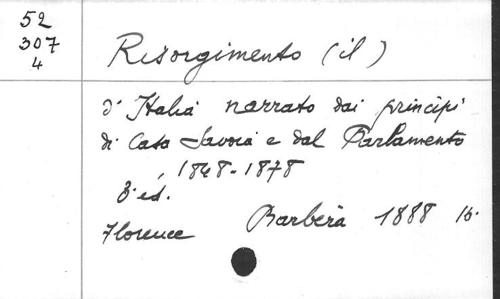 52
307
4
Risorgimento (il)
d'Italia narrato dai principi
di Casa Savoia e dal Parlamento
, 1848-1878
3. ed.
Florence Barbèra 1888 16.